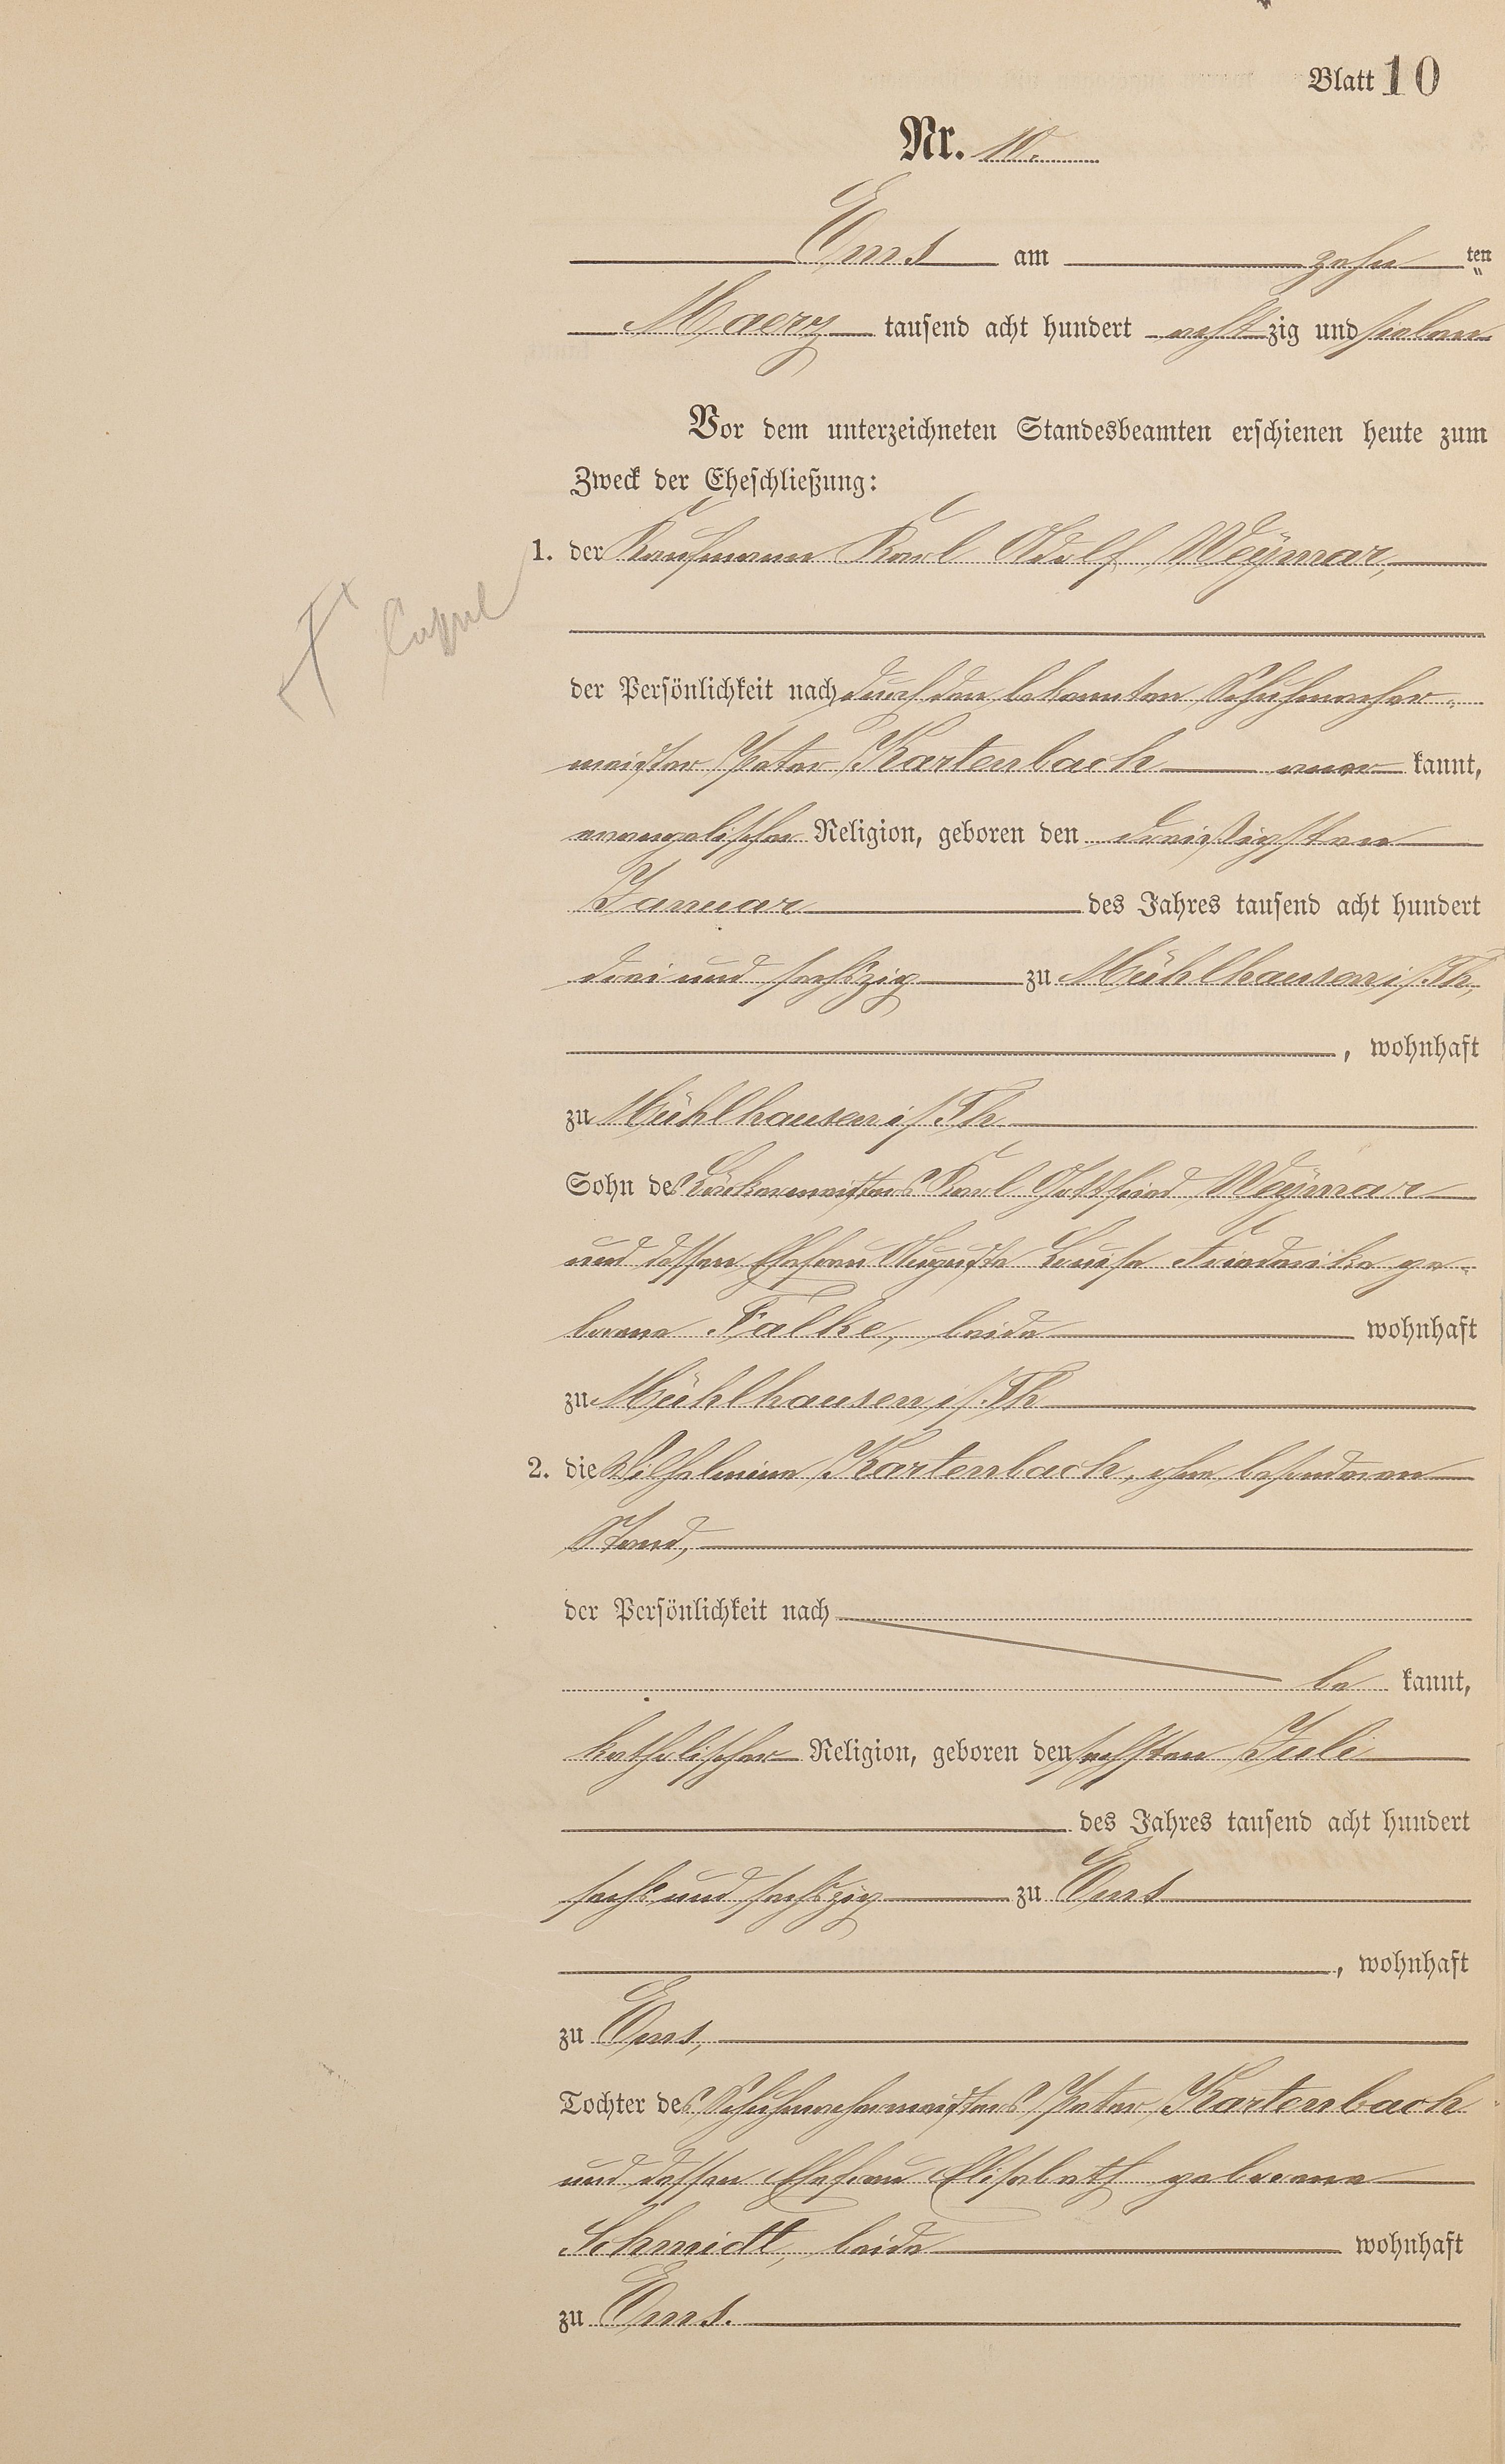 Blatt 10
Nr. 10.
Ems am zehn ten
Maerz tausend acht hundert acht zig und sieben
Vor dem unterzeichneten Standesbeamten erschienen heute zum
Zweck der Eheschließung:
1. der Kaufmann Karl Adolf Weÿmar,
der Persönlichkeit nach durch den bekannten Schuhmacher-
meister Peter Kartenbach aner kannt,
evangelischer Religion, geboren den dreißigsten
Januar des Jahres tausend acht hundert
drei und sechszig zu Mühlhausen i/Th,
, wohnhaft
zu Mühlhausen i/Th
Sohn des Bäckermeisters Karl Gottfried Weÿmar
und dessen Ehefrau Auguste Louise Friederike ge-
borene Falke, beide wohnhaft
zu Mühlhausen i/Th
2. die Wilhelmine Kartenbach, ohne besonderen
Stand,
der Persönlichkeit nach
be kannt,
katholischer Religion, geboren den sechsten Juli
des Jahres tausend acht hundert
sechs und sechszig zu Ems
, wohnhaft
zu Ems,
Tochter des Schuhmachermeisters Peter Kartenbach
und dessen Ehefrau Elisabeth geborene
Schmidt, beide wohnhaft
zu Ems.